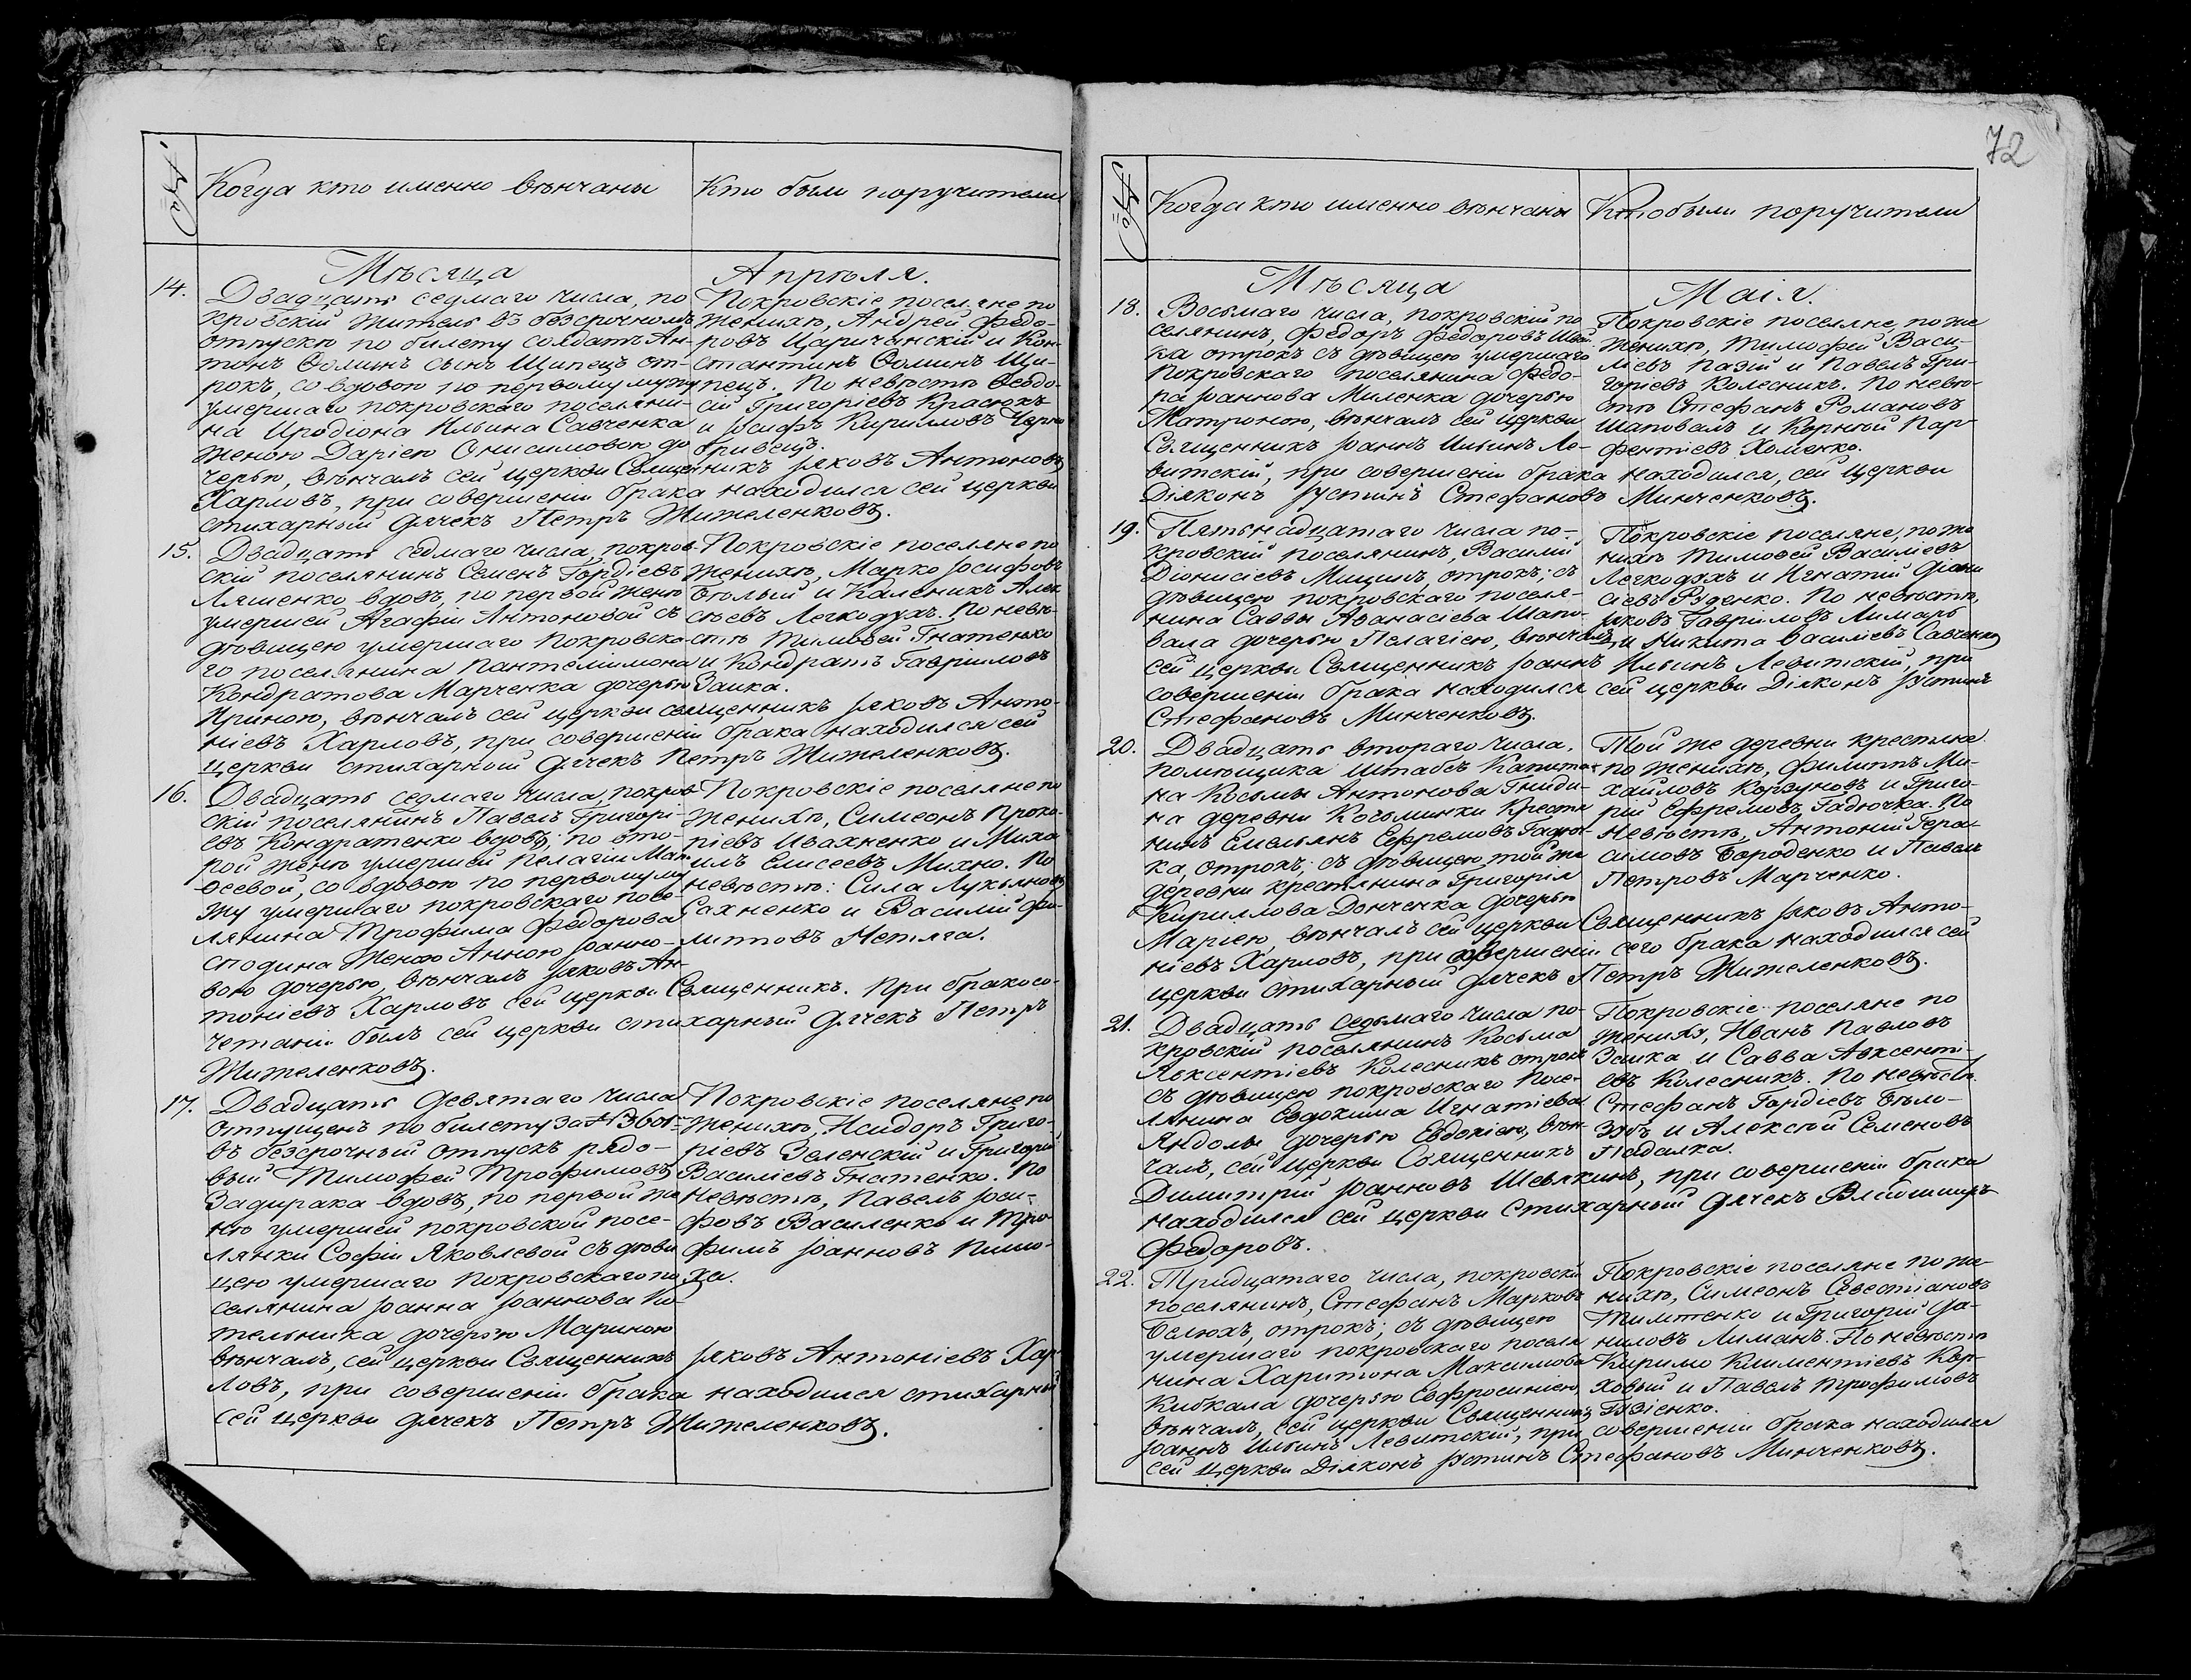 №
Когда кто именно вѣнчаны
Кто были поручители
Мѣсяца
Апрѣля.
14.
Двадцать седмаго числа, по
кровскій житель въ безсрочномъ
отпуску по билету солдатъ Ан-
тонъ Ѳоминъ сынъ Щипецъ от-
рокъ, со вдовою по первому мужу
умершаго покровскаго поселяни-
на Иродіона Ильина Савченка
женою Даріею Онисимовою до
черью, вѣнчалъ сей церкви Священникъ Іяковъ Антоновъ
Харловъ, при совершеніи брака находился сей церкви
стихарный дячекъ Петръ Жителенковъ.
Покровскіе поселяне по
женихѣ, Андрей Федо-
ровъ Царичанскій и Кон-
стантинъ Ѳоминъ Щи-
пецъ. По невѣстѣ Ѳеодо-
сій Григоріевъ Краснокъ
и Іосифъ Кириловъ Черно
бривецъ.
15.
Двадцать седмаго числа, покров
скій поселянинъ Семенъ Гордіевъ
Ляшенко вдовъ, по первой женѣ
умершей Агафіи Антоновой съ
дѣвицею умершаго покровска-
го поселянина Пантелімона
Кондратова Марченка дочерью
Ириною, вѣнчалъ сей церкви священникъ Іяковъ Анто-
ніевъ Харловъ, при совершеніи брака находился сей
церкви стихарный дячекъ Петръ Жителенковъ.
Покровскіе поселяне по
женихѣ, Марко Іосифовъ
Бѣлый и Каленикъ Алек
сѣевъ Легкодухъ. По невѣ-
стѣ Тимоѳей Гнатенко
и Кондратъ Гавріиловъ
Заика.
16.
Двадцать седмаго числа, покров
скій поселянинъ Павелъ Григорі-
евъ Кондратенко вдовъ, по вто-
рой женѣ умершей Пелагіи Мат
ѳеевой, со вдовою по первому му
жу умершаго покровскаго посе-
лянина Трофима Федорова
Сподина женою Анною Іоанно-
вою дочерью, вѣнчалъ Іяковъ Ан-
тоніевъ Харловъ сей церкви Священникъ. При бракосо-
четаніи былъ сей церкви стихарный дячекъ Петръ
Жителенковъ.
Покровскіе поселяне по
женихѣ, Симеонъ Проко-
піевъ Ивахненко и Миха
илъ Елисеевъ Михно. По
невѣстѣ: Сила Лукьяновъ
Сахненко и Василій Фи-
липповъ Нетяга.
17.
Двадцать девятаго числа
отпущенъ по билету за № 3601
въ безсрочный отпускъ рядо-
вый Тимофей Трофимовъ
Задирака вдовъ, по первой же
нѣ умершей покровской посе-
лянки Софіи Яковлевой съ дѣви
цею умершаго покровскаго по
селянина Іоанна Іоаннова Ко-
тельника дочерью Мариною
вѣнчалъ, сей церкви Священникъ Іяковъ Антоніевъ Хар
ловъ, при совершеніи брака находился стихарный
сей церкви дячекъ Петръ Жителенковъ.
Покровскіе поселяне по
женихѣ, Исидоръ Григо-
ріевъ Зеленскій и Григорій
Василіевъ Гнатенко. По
невѣстѣ, Павелъ Іоси-
фовъ Василенко и Тро-
фимъ Іоанновъ
ха.
72
№
Когда кто именно вѣнчаны
Кто были поручители
Мѣсяца
Маія.
18.
Восьмаго числа, покровскій по
селянинъ, Федоръ Федоровъ
ка отрокъ съ дѣвицею умершаго
Покровскаго поселянина Федо-
ра Іоаннова Миленка дочерью
Матроною, вѣнчалъ сей церкви
Священникъ Іоаннъ Ильинъ Ле-
витскій, при совершеніи брака находился, сей церкви
Діяконъ Іустинъ Стефановъ Минченковъ.
Покровскіе поселяне, по же
женихѣ, Тимофей Васи-
лiевъ Пазій и Павелъ Гри-
горіевъ Колесникъ. По невѣ-
стѣ Стефанъ Романовъ
Шаповалъ и Корній Пар-
фентіевъ Хоменко.
19.
Пятьнадцатаго числа по-
кровскій поселянинъ, Василій
Діонисіевъ Мищикъ, отрокъ; съ
дѣвицею покровскаго поселя-
нина Саввы Аѳанасіева Шапо-
вала дочерью Пелагіею, вѣнчалъ
сей церкви Священникъ Іоаннъ Ильинъ Левитскій, при
совершеніи брака находился сей церкви Діяконъ Іустинъ
Стефановъ Минченковъ.
Покровскіе поселяне, по же
нихѣ Тимоѳей Василіевъ
Легкодухъ и Игнатій Діони
сіевъ Руденко. По невѣстѣ,
Іяковъ Гавріиловъ Лимарь
и Никита Василіевъ Савченко
20.
Двадцать втораго числа,
помѣщика Штабсъ Капита-
на Косьмы Антонова Гниди-
на деревни Косьминки крестя
нинъ Емельянъ Ефремовъ Гадюч-
ка, отрокъ; съ дѣвицею, той же
деревни крестянина Григорія
Кириллова Донченка дочерью
Маріею, вѣнчалъ сей церкви Священникъ Іяковъ Анто-
ніевъ Харловъ, при совершеніи сего брака находился сей
церкви стихарный дячекъ Петръ Жителенковъ.
Той же деревни крестяне
по женихѣ, Филиппъ Ми-
хайловъ Корзуновъ и Григо-
рій Ефремовъ Гадючка. По
невѣстѣ, Антоній Гера-
симовъ Бороденко и Павелъ
Петровъ Марченко.
21.
Двадцать седьмаго числа по-
кровскій поселянинъ Косьма
Авксентіевъ Колесникъ отрокъ
съ дѣвицею покровскаго посе-
лянина Евдокима Игнатіева
Яндолы дочерью Евдокіею, вѣн-
чалъ, сей церкви Священникъ
Димитрій Іоанновъ Шевякинъ, при совершеніи брака
находился сей церкви Стихарный дячекъ Владимиръ
Федоровъ.
Покровскіе поселяне по
женихѣ, Иванъ Павловъ
Заика и Савва Авксенті-
евъ Колесникъ. По невѣстѣ
Стефанъ Гордіевъ Бѣло-
зубъ и Алексѣй Семеновъ
Падалка.
22.
Тридцатаго числа, покровскій
поселянинъ, Стефанъ Марковъ
Белюхъ, отрокъ; съ дѣвицею
умершаго покровскаго поселя
нина Харитона Максимова
Кибкала дочерью Евфросиніею,
вѣнчалъ, сей церкви Священникъ
Іоаннъ Ильинъ Левитскій, при совершеніи брака находился
сей церкви Діяконъ Іустинъ Стефановъ Минченковъ.
Покровскіе поселяне по же-
нихѣ, Симеонъ Севестіановъ
Тимтенко и Григорій Да-
ниловъ Лиманъ. По невѣстѣ
Кирило Климентіевъ Кор-
ховый и Павелъ Трофимовъ